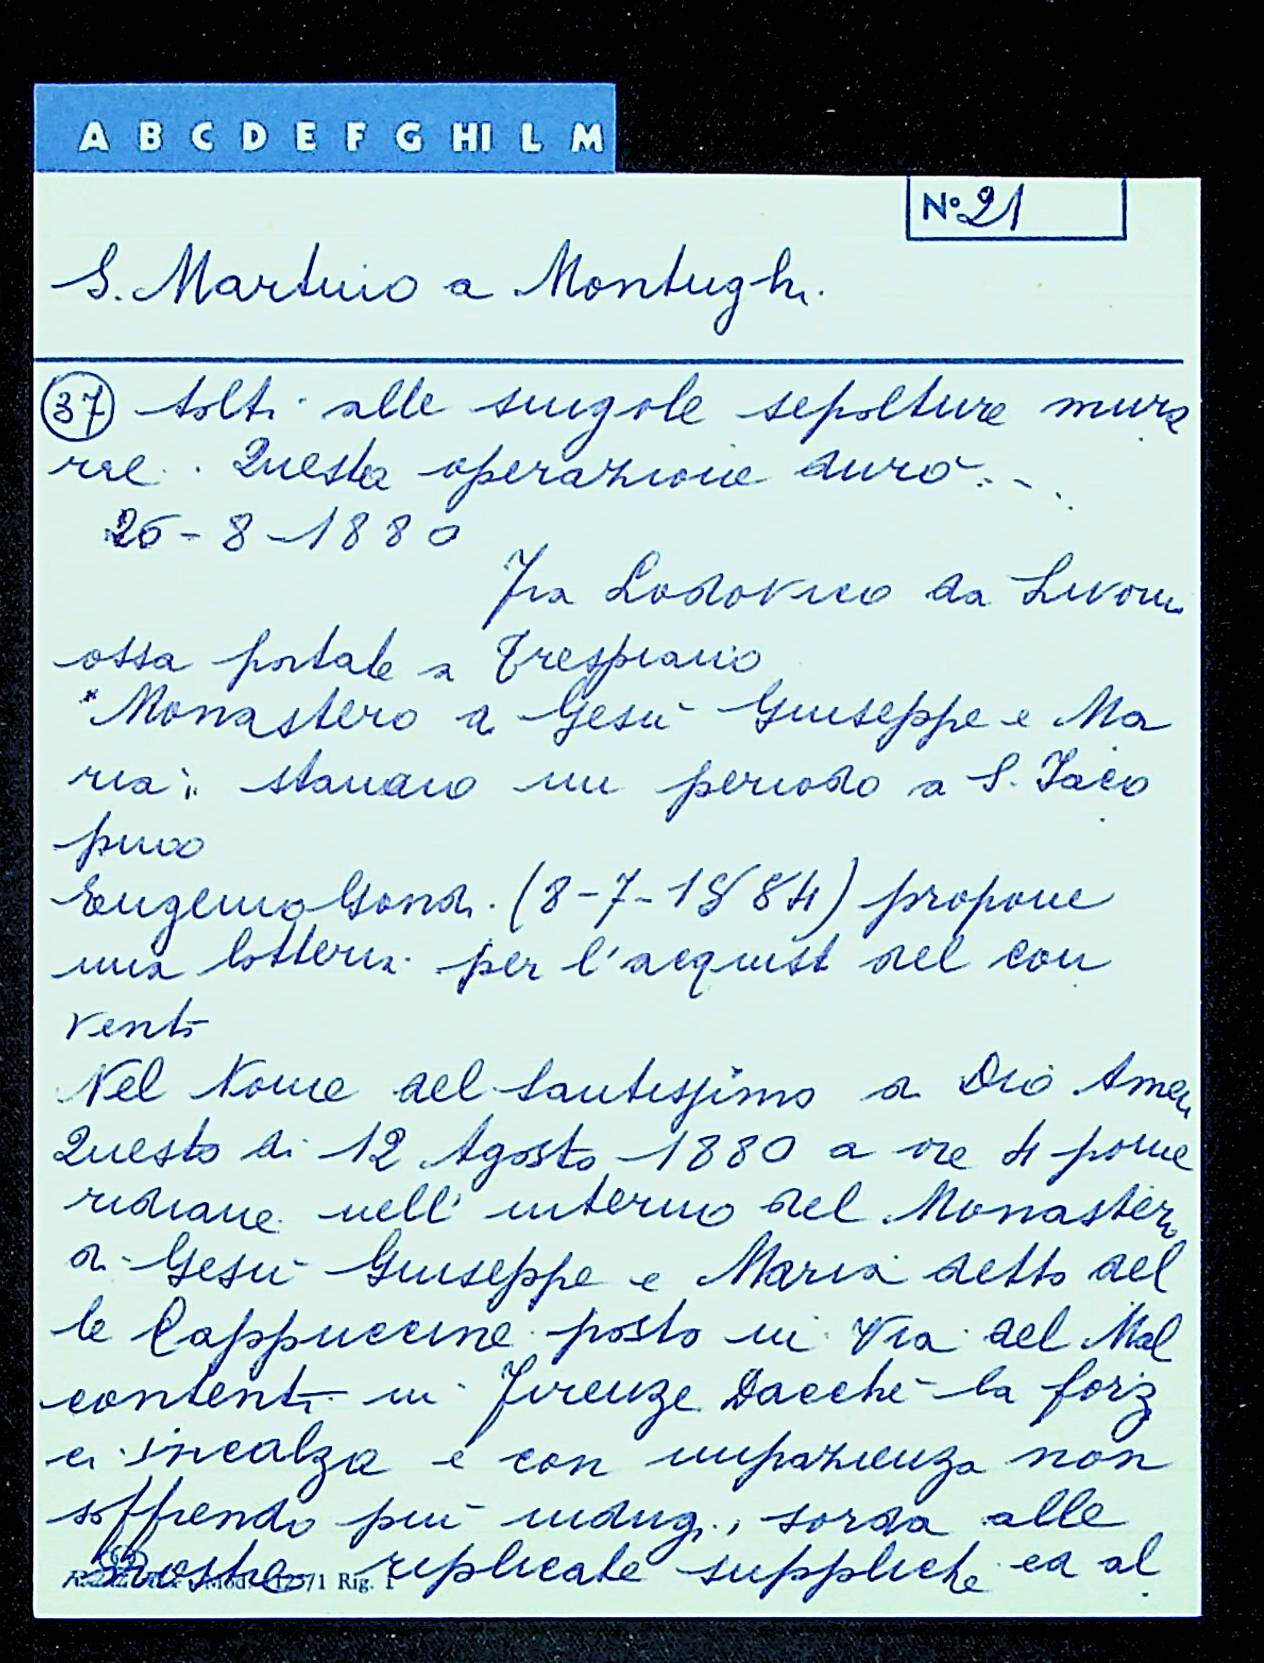 A B C D E F G HI L M
N° 21
S. Martino a Montughi.
37 tolti alle singole sepolture mura
rie. Questa operazione durò...
26-8-1880
Fra Lodovico da Livorno
ossa portate a Trespiano
"Monastero di Gesù Giuseppe e Ma
ria" stavano un periodo a S. Jaco
pino
Eugenio Gondi (8-7-1884) propone
una lotteria per l'acquisto del con
vento
Nel Nome del Santissimo di Dio Amen
Questo di 12 Agosto 1880 a ore 4 pome
ridiane nell'interno del Monastero
di Gesù Giuseppe e Maria detto del
le Cappuccine posto in Via dei Mal
contenti in Firenze Dacchè la forza
ci incalza e con impazienza non
soffrendo più indugi, sorda alle
nostre replicate suppliche ed al
Rig. 1